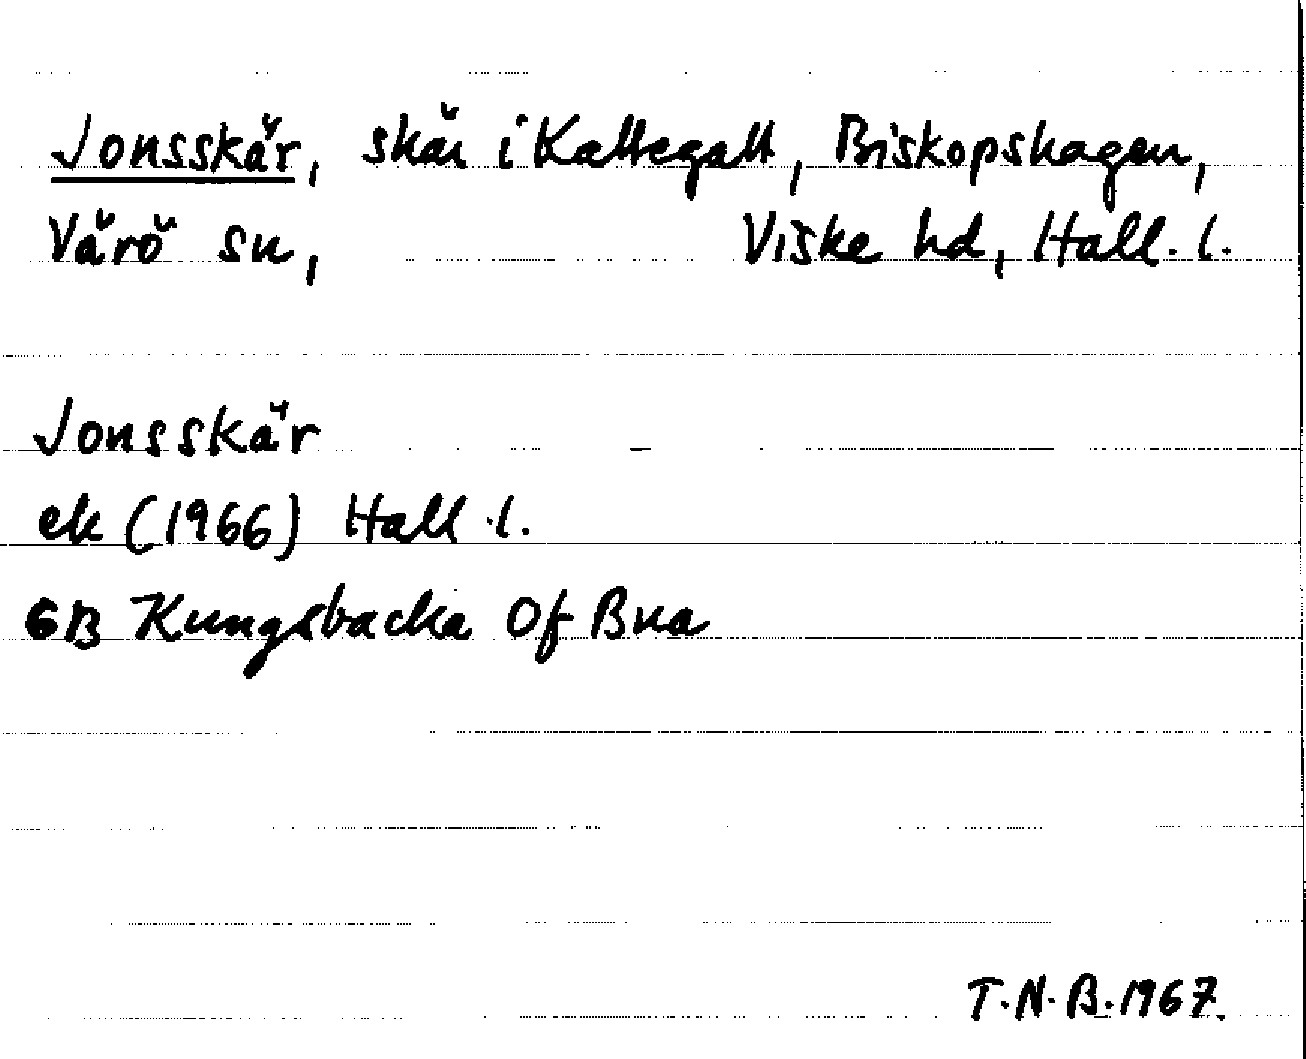 Jonsskär, skär i Kattegatt, Biskopshagen,
Värö sn, Viske hd, Hall. l.
Jonsskär
ek (1966) Hall. l.
6B Kungsbacka Of Bua
T.N.B. 1967.